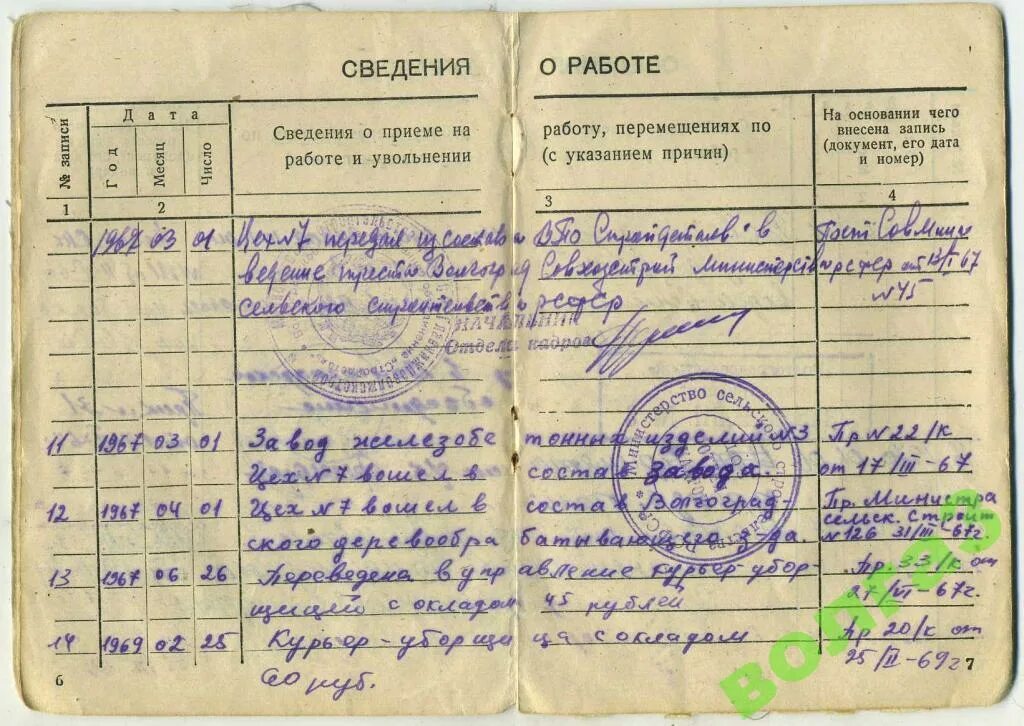 СВЕДЕНИЯ О РАБОТЕ
№ записи
Дата
Год
Месяц
Число
Сведения о приеме на работу, перемещениях по
работе и увольнении (с указанием причин)
На основании чего
внесена запись
(документ, его дата
и номер)
1 2 3 4
1967 03 01 Цех №7 передан из состава ВПо Стройдеталь в Пост. Сов Мин
ведение треста Волгоград Совхозстрой министерств РСФСР от 13/I 67
сельского строительства РСФСР №45
НАЧАЛЬНИК
Отдела кадров
11 1967 03 01 Завод железобе тонных изделий №3 Пр №22/к
Цех №7 вошел в состав завода. от 17/III-67
12 1967 04 01 Цех №7 вошел в состав Волгоград Пр. Министра
сельск. строит
ского деревообра батывающего з-да. №126 31/III-67г.
13 1967 06 26 Переведена в упр авление курьер-убор Пр. 33/к от
щицей с окладом 45 рублей 27/VI-67г.
14 1969 02 25 Курьер-уборщи ца с окладом Пр 20/к от
60 руб. 25/II-69г
Министерство сельского строительства РСФСР
6 7
волга3